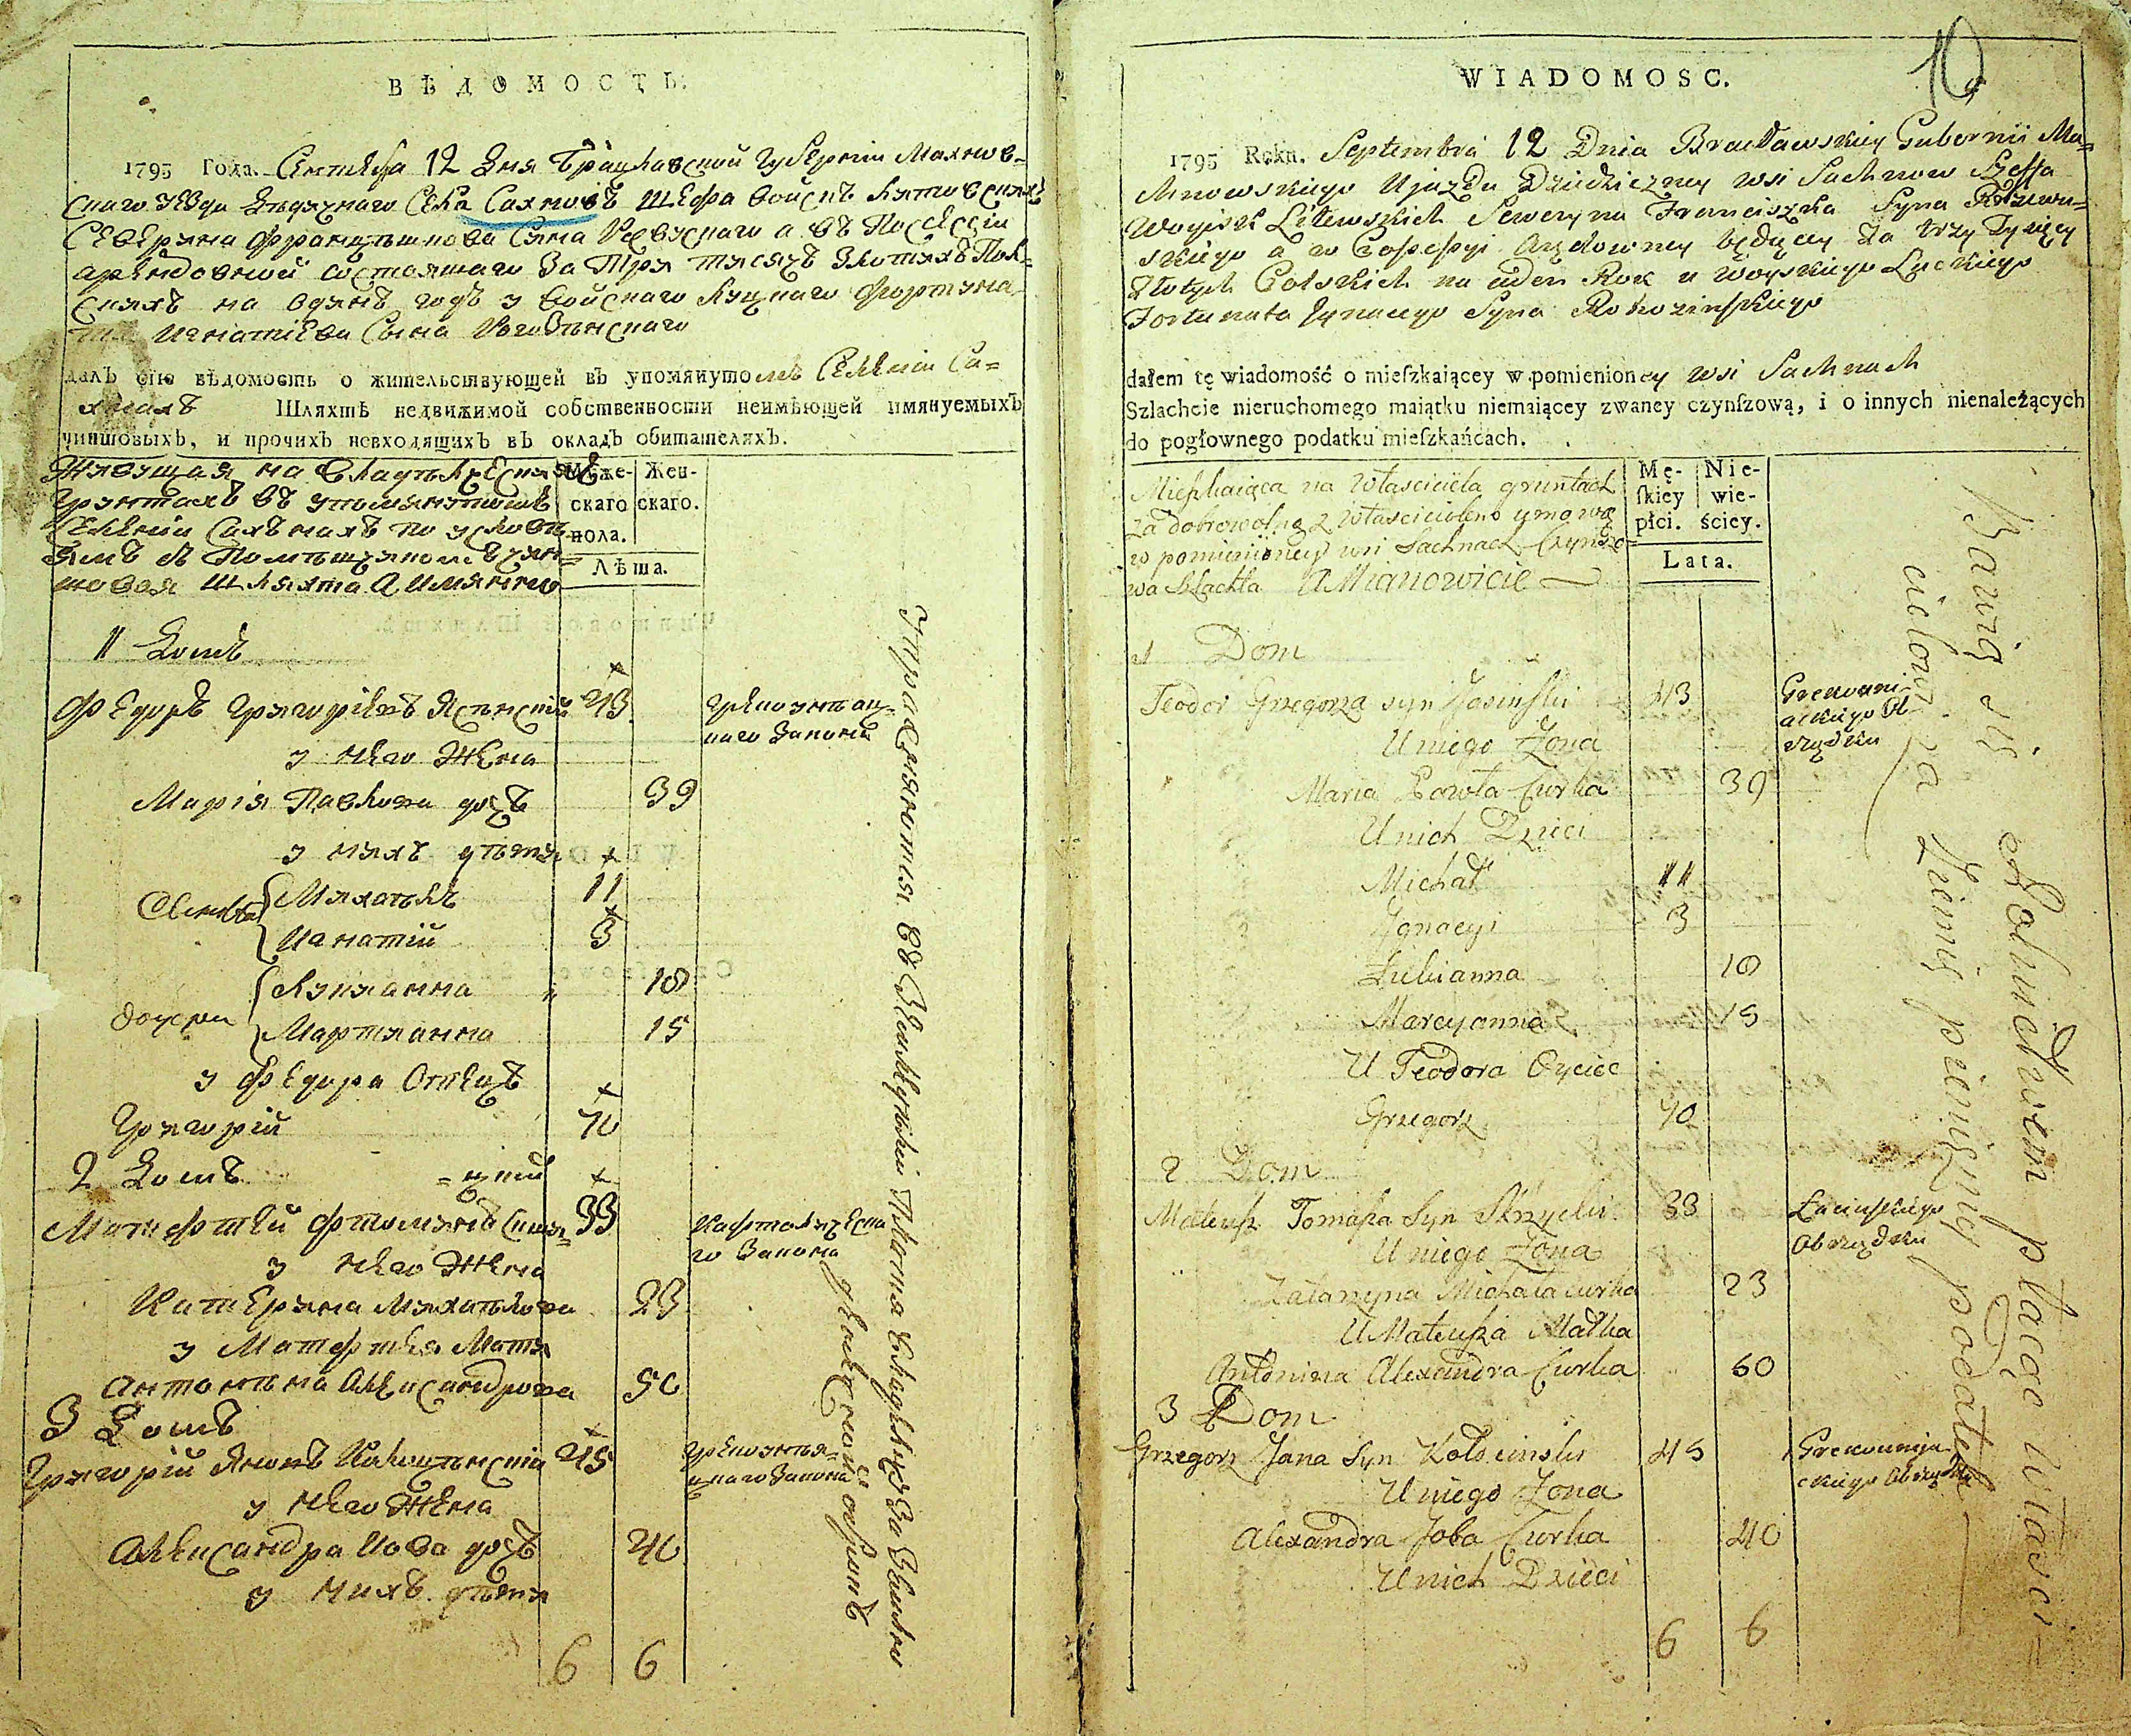 ВѢДОМОСТЬ.
1795 Года. Сентября 12 Дня Брацлавской Губернии Махнов=
скаго уезда Дедичнаго Села Сахновъ Шефа войскъ Литовскихъ
Северина Францишкова Сына Ржевускаго а въ Поссессии
арендовной состоящаго За Три тисячъ Злотихъ Пол=
скихъ на одинъ годъ у Войскаго Луцкаго Фортуна
та Игнатиева Сына
далъ сію вѣдомость о жительствующей въ упомянутомъ Селении Са=
хнахъ Шляхтѣ недвижимой собственности неимѣющей имянуемыхъ
чиншовыхъ, и прочихъ невходящихъ въ окладъ обитателяхъ.
Живущая на владѣлческихъ
грунтахъ въ упомянутомъ
Селении Сахнахъ по услови=
ямъ с Помѣщикомъ чин=
шовая шляхта а имянно
Муже- Жен-
скаго скаго.
пола.
Лѣта.
1 Домъ
Федоръ Григориевъ Ясѣнский 43
у него Жена
Мария Павлова дочь 39
у нихъ дѣти
Синовья Михайлъ 11
Игнатий 3
дочери Лукианна 18
Мартианна 15
у Федора Отецъ
Григорий 70
2 Домъ =цкий
Матфтей Фтоминъ Скши= 33
Католическа
го Закона
у него Жена
Катерина Михайлова 23
у Матфтея Мати
Антонѣна Александрова 50
3 Домъ
Григорий Яновъ Колоцѣнский 45
у него Жена
Александра Иова дочь 40
у нихъ дѣти
6 6
WIADOMOSC.
1795 Roku. Septembra 12 Dnia Bracławskiey Gubernii Ma=
chnowskiego Ujazdu Dziedziczney wsi Sachnow Szeffa
Woysk Litewskich Seweryna Franciszka Syna Rzewu=
skiego a w Possessyi Arędowney będącey za trzy Tysięcy
Złotych Polskich na ieden Rok u Woyskiego Łuckiego
Fortunata Ignacego Syna
dałem tę wiadomość o mieſzkaiącey w pomienioney wsi Sachnach
Szlachcie nieruchomego maiątku niemaiącey zwaney czynſzową, i o innych nienależących
do pogłownego podatku mieſzkańcach.
Mieszkaiąca na Własciciela gruntach
za dobrowolną z własciciolem umową
w pomienioney wsi Sachnach Czynszo=
wa Szlachta A Mianowicie
Mę- Nie-
ſkiey wie-
płci. ściey.
Lata.
1 Dom
Teodor Grzegorza syn Jasinski 43
U niego Żona
Maria Pawła Curka 39
U nich Dzieci
Michał 11
Ignacyi 3
Łukianna 18
Marcyanna 15
U Teodora Oyciec
Grzegorz 70
2 Dom
Mateusz Tomasza Syn Skrzycki 33
Łacinskiego
Obrządku
U niego Żona
Katarzyna Michała curka 23
U Mateusza Matka
Antonina Alexandra Curka 50
3 Dom
Grzegorz Jana Syn Kołocinski 45
U niego Żona
Alexandra Joba Curka 40
U nich Dzieci
6 6
Bawią się Rolnictwem płacąc własci=
cielowi za Ziemię pieniężny podatek